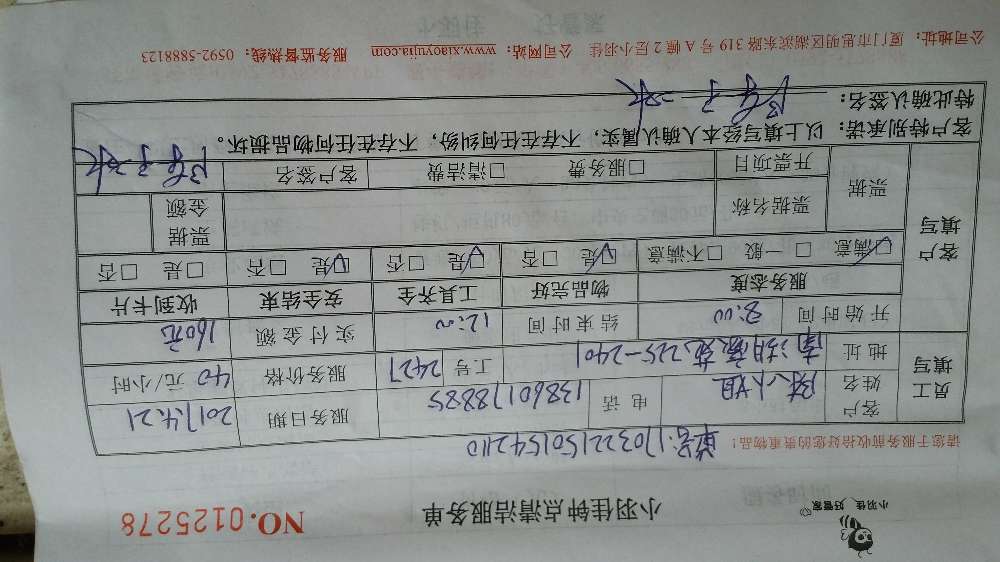 小羽佳 好管家
小羽佳钟点清洁服务单
NO.0125278
请您于服务前收拾好您的贵重物品！
单号:170322150154240
员工填写
客户姓名 陈小姐 电话 13860178885 服务日期 2017.4.21
地址 南湖豪苑225-2401 工号 2427 服务价格 40 元/小时
开始时间 8:00 结束时间 12:00 实付金额 160元
客户填写
服务态度 物品完好 工具齐全 安全结束 收到卡片
☑满意 □一般 □不满意 ☑是 □否 ☑是 □否 ☑是 □否 □是 □否
票据 票据名称 票据金额
开票项目 □服务费 □清洁费 客户签名
客户特别承诺：以上填写经本人确认属实，不存在任何纠纷，不存在任何物品损坏。
特此确认签名：
公司地址：厦门市思明区湖滨东路319号A幢2层小羽佳 公司网站：www.xiaoyujia.com 服务监督热线：0592-5888123